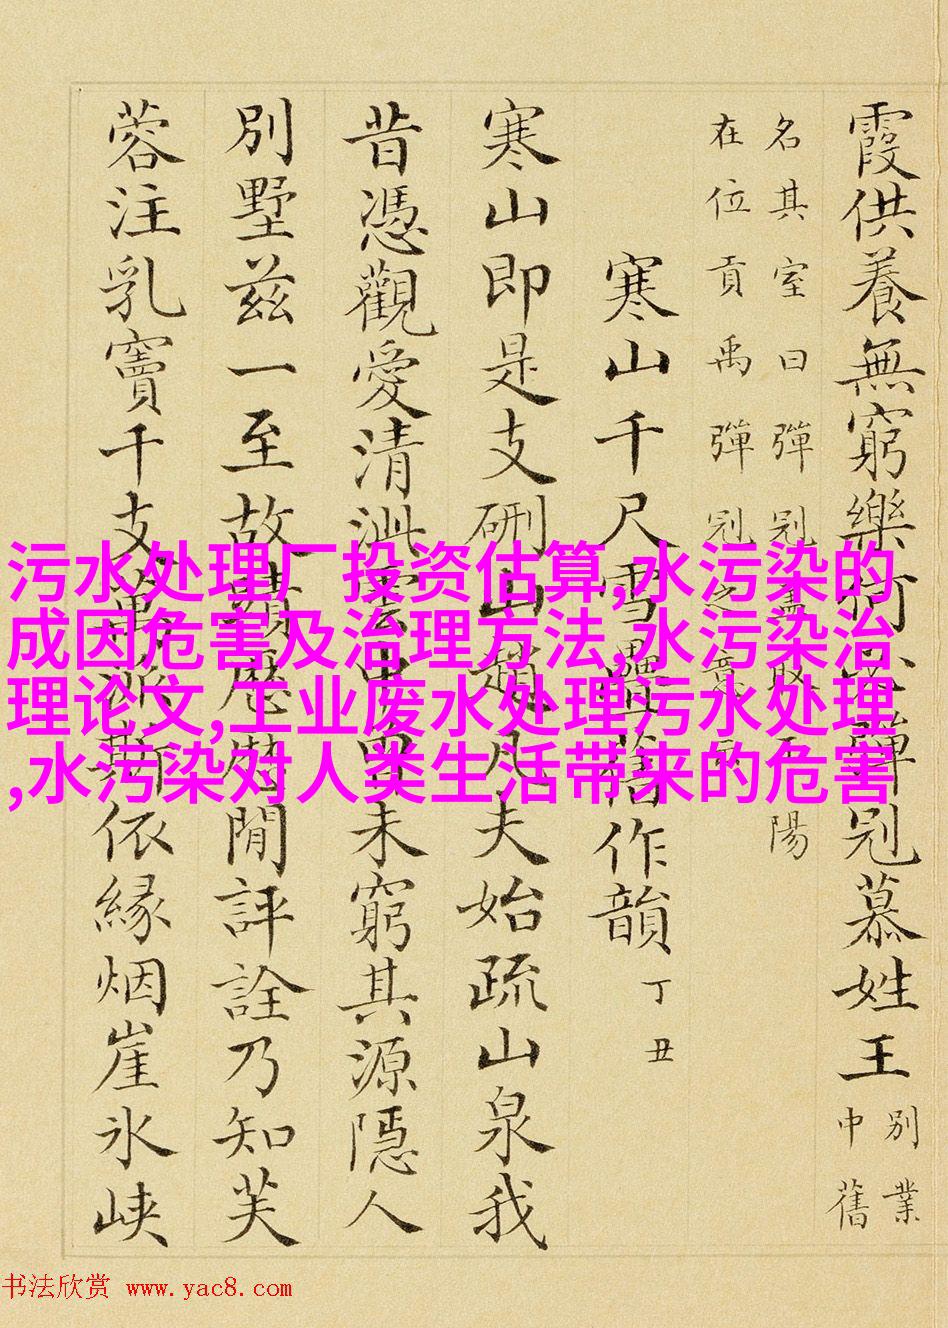 霞供養無窮樂何必彈冠慕姓王 別業
中舊
名其室曰彈冠蓋取王陽
在位貢禹彈冠之意云
寒山千尺雪疊舊作韻 丁丑
寒山即是支硎山趙凡夫始疏山泉我
昔憑觀愛清泚雲中未窮其源隱人
別墅茲一至故蹟歷歷閒評詮乃知芙
蓉注乳竇千支萬派斯依緣烟崖氷峽
污水处理厂投资估算,水污染的
成因危害及治理方法,水污染治
理论文,工业废水处理污水处理
,水污染对人类生活带来的危害
书法欣赏 www.yac8.com